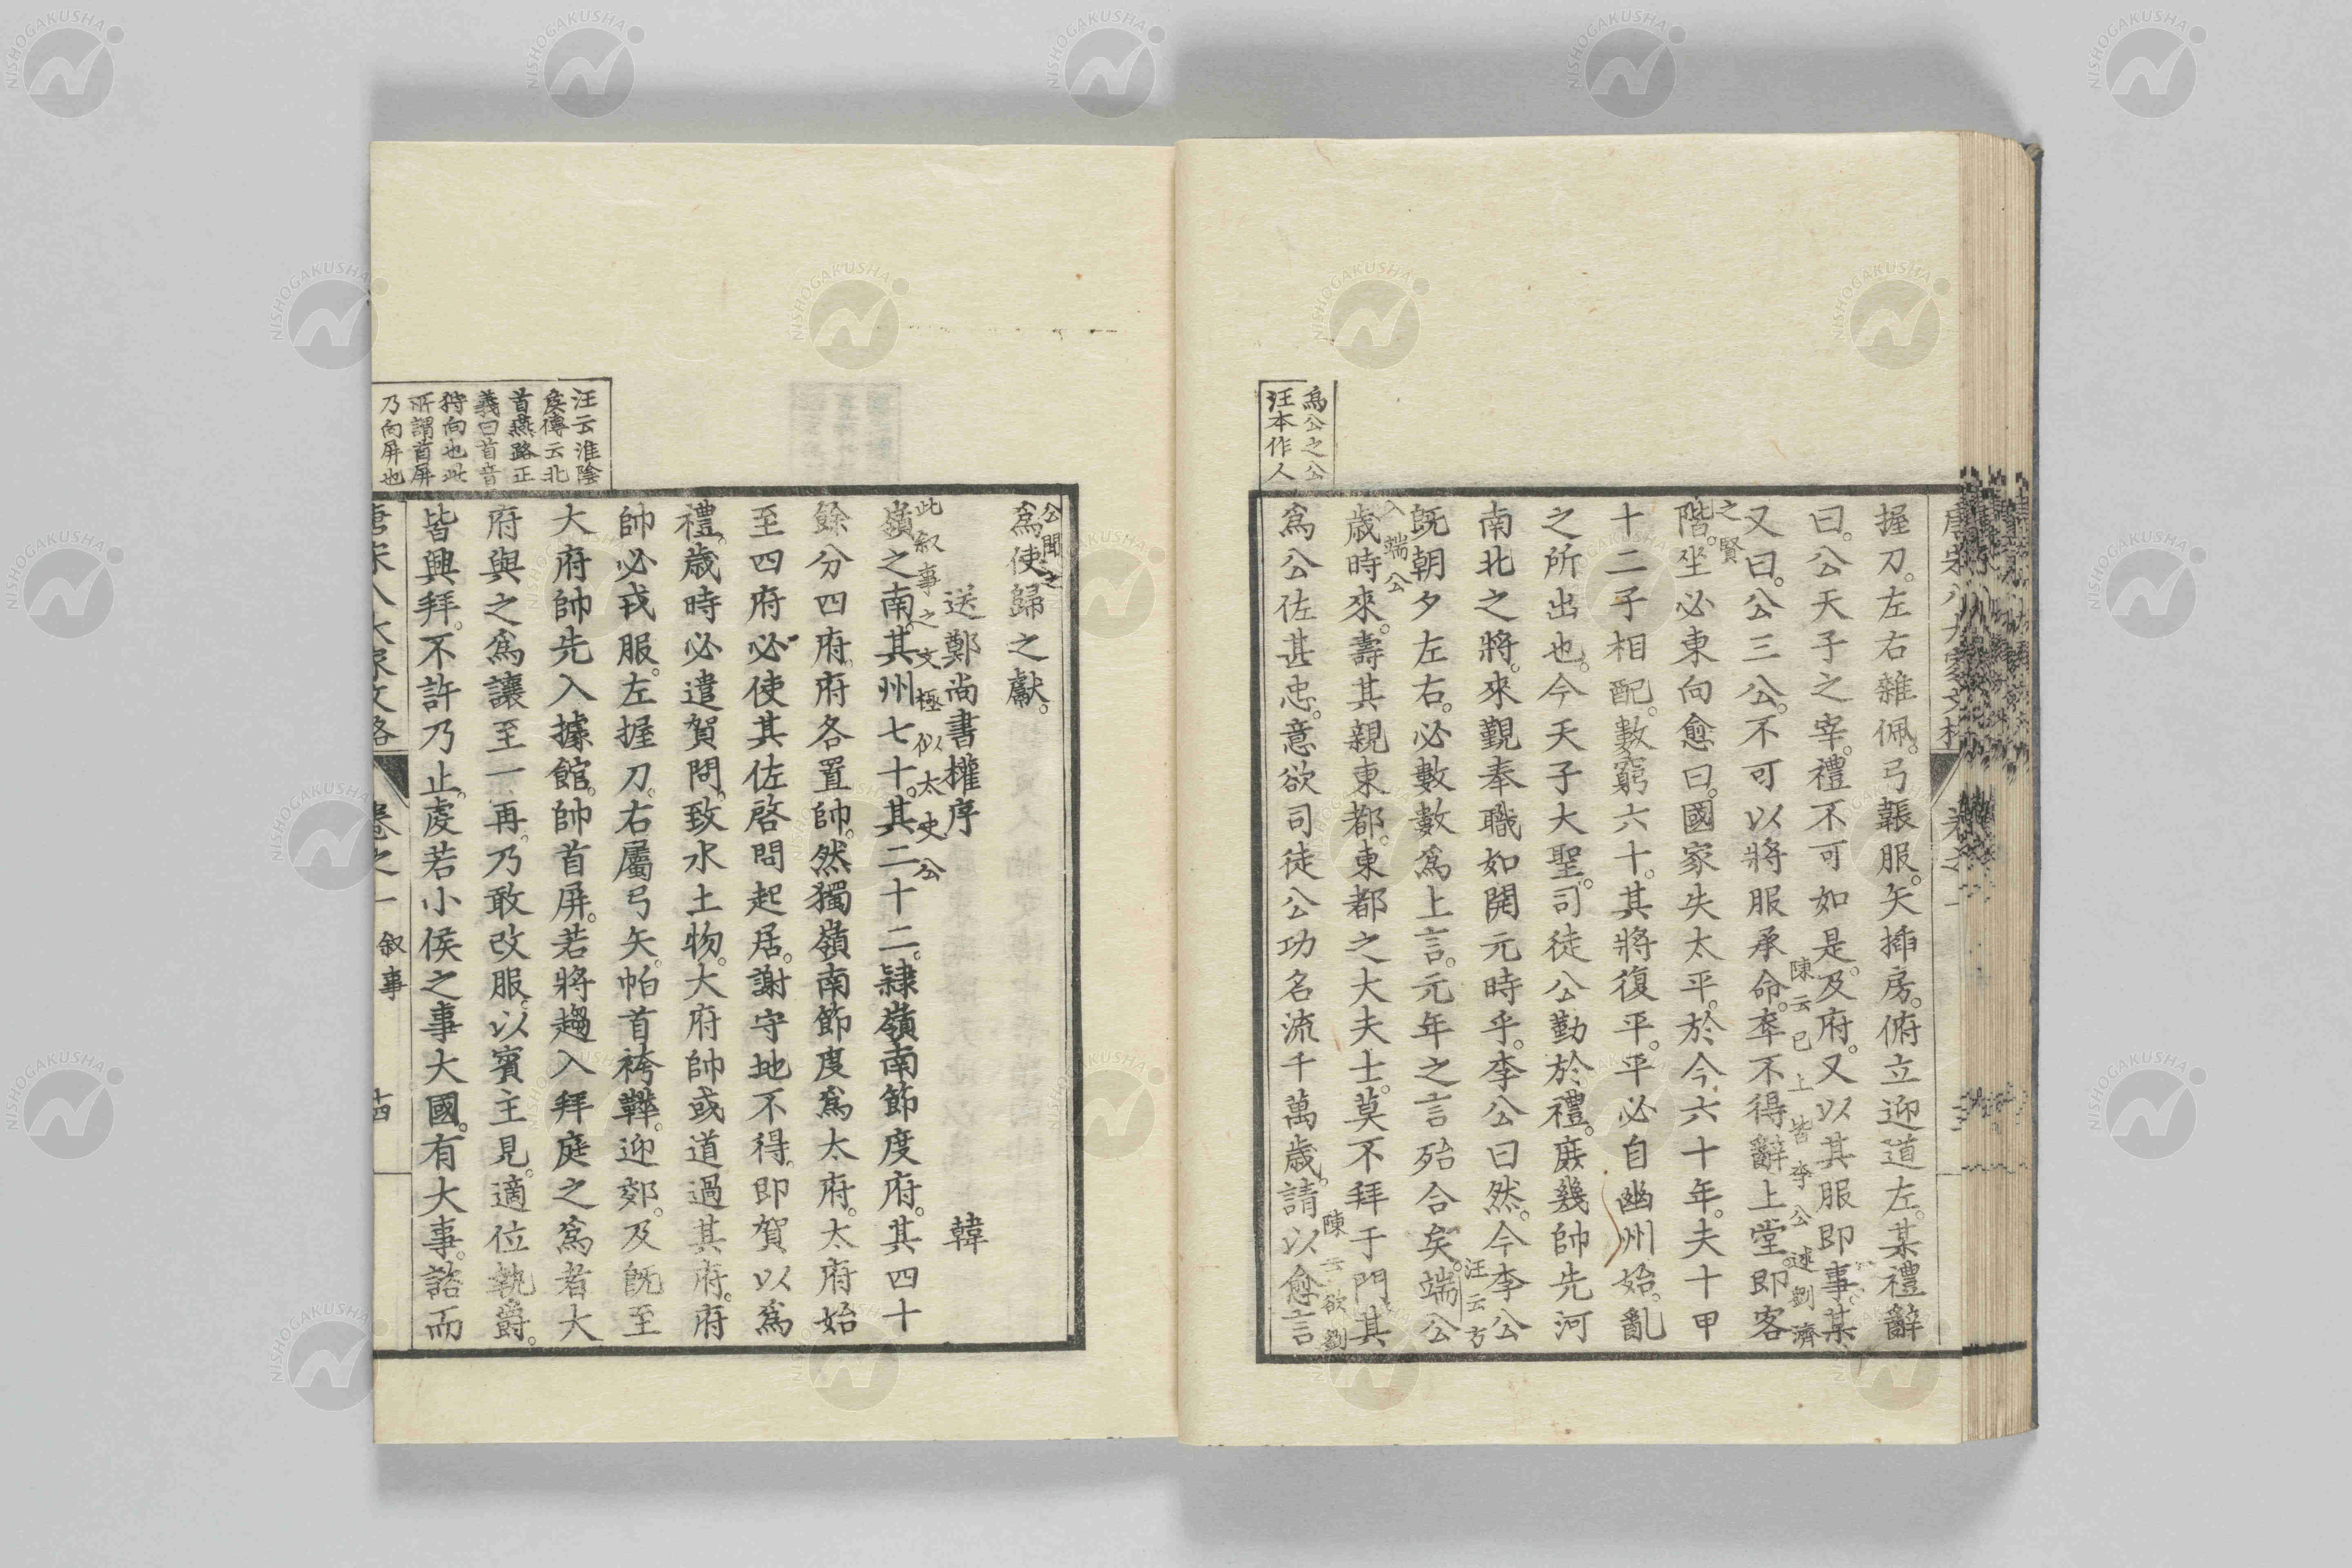 握刀。左右雜佩。弓韔服。矢揷房。俯立迎道左。某禮辭
曰。公天子之宰。禮不可如是。及府。又以其服即事。某
陳云已上皆李公述劉濟
又曰。公三公。不可以將服承命。卒不得辭上堂。即客
之賢
階。坐必東向愈曰。國家失太平。於今六十年。夫十甲
十二子相配。數窮六十。其將復平。平必自幽州始。亂
之所出也。今天子大聖。司徒公勤於禮。庶幾帥先河
南北之將。來覲奉職如開元時乎。李公曰然。今李公
汪云方
旣朝夕左右。必數數爲上言。元年之言殆合矣。端公
入端公
歲時來。壽其親東都。東都之大夫士。莫不拜于門其
陳云欲劉
爲公佐甚忠。意欲司徒公功名流千萬歲。請以愈言
爲公之公
汪本作人
公聞之
爲使歸之獻。
送鄭尚書權序 韓
此叙事之文極似太史公
嶺之南。其州七十。其二十二。隷嶺南節度府。其四十
餘分四府。府各置帥。然獨嶺南節度爲太府。太府始
至四府必使其佐啓問起居。謝守地不得。即賀以爲
禮。歲時必遣賀問。致水土物。大府帥或道過其府。府
帥必戎服。左握刀。右屬弓矢。帕首袴鞾。迎郊。及旣至
大府帥先入據館。帥首屏。若將趨入拜庭之爲者大
府與之爲讓至一再。乃敢改服。以賓主見。適位執爵。
皆興拜。不許乃止。虔若小侯之事大國。有大事。諮而
汪云淮陰
侯傳云北
首燕路正
義曰首音
狩向也此
所謂首屏
乃向屏也
唐宋八大家文格 卷之一 叙事 十四